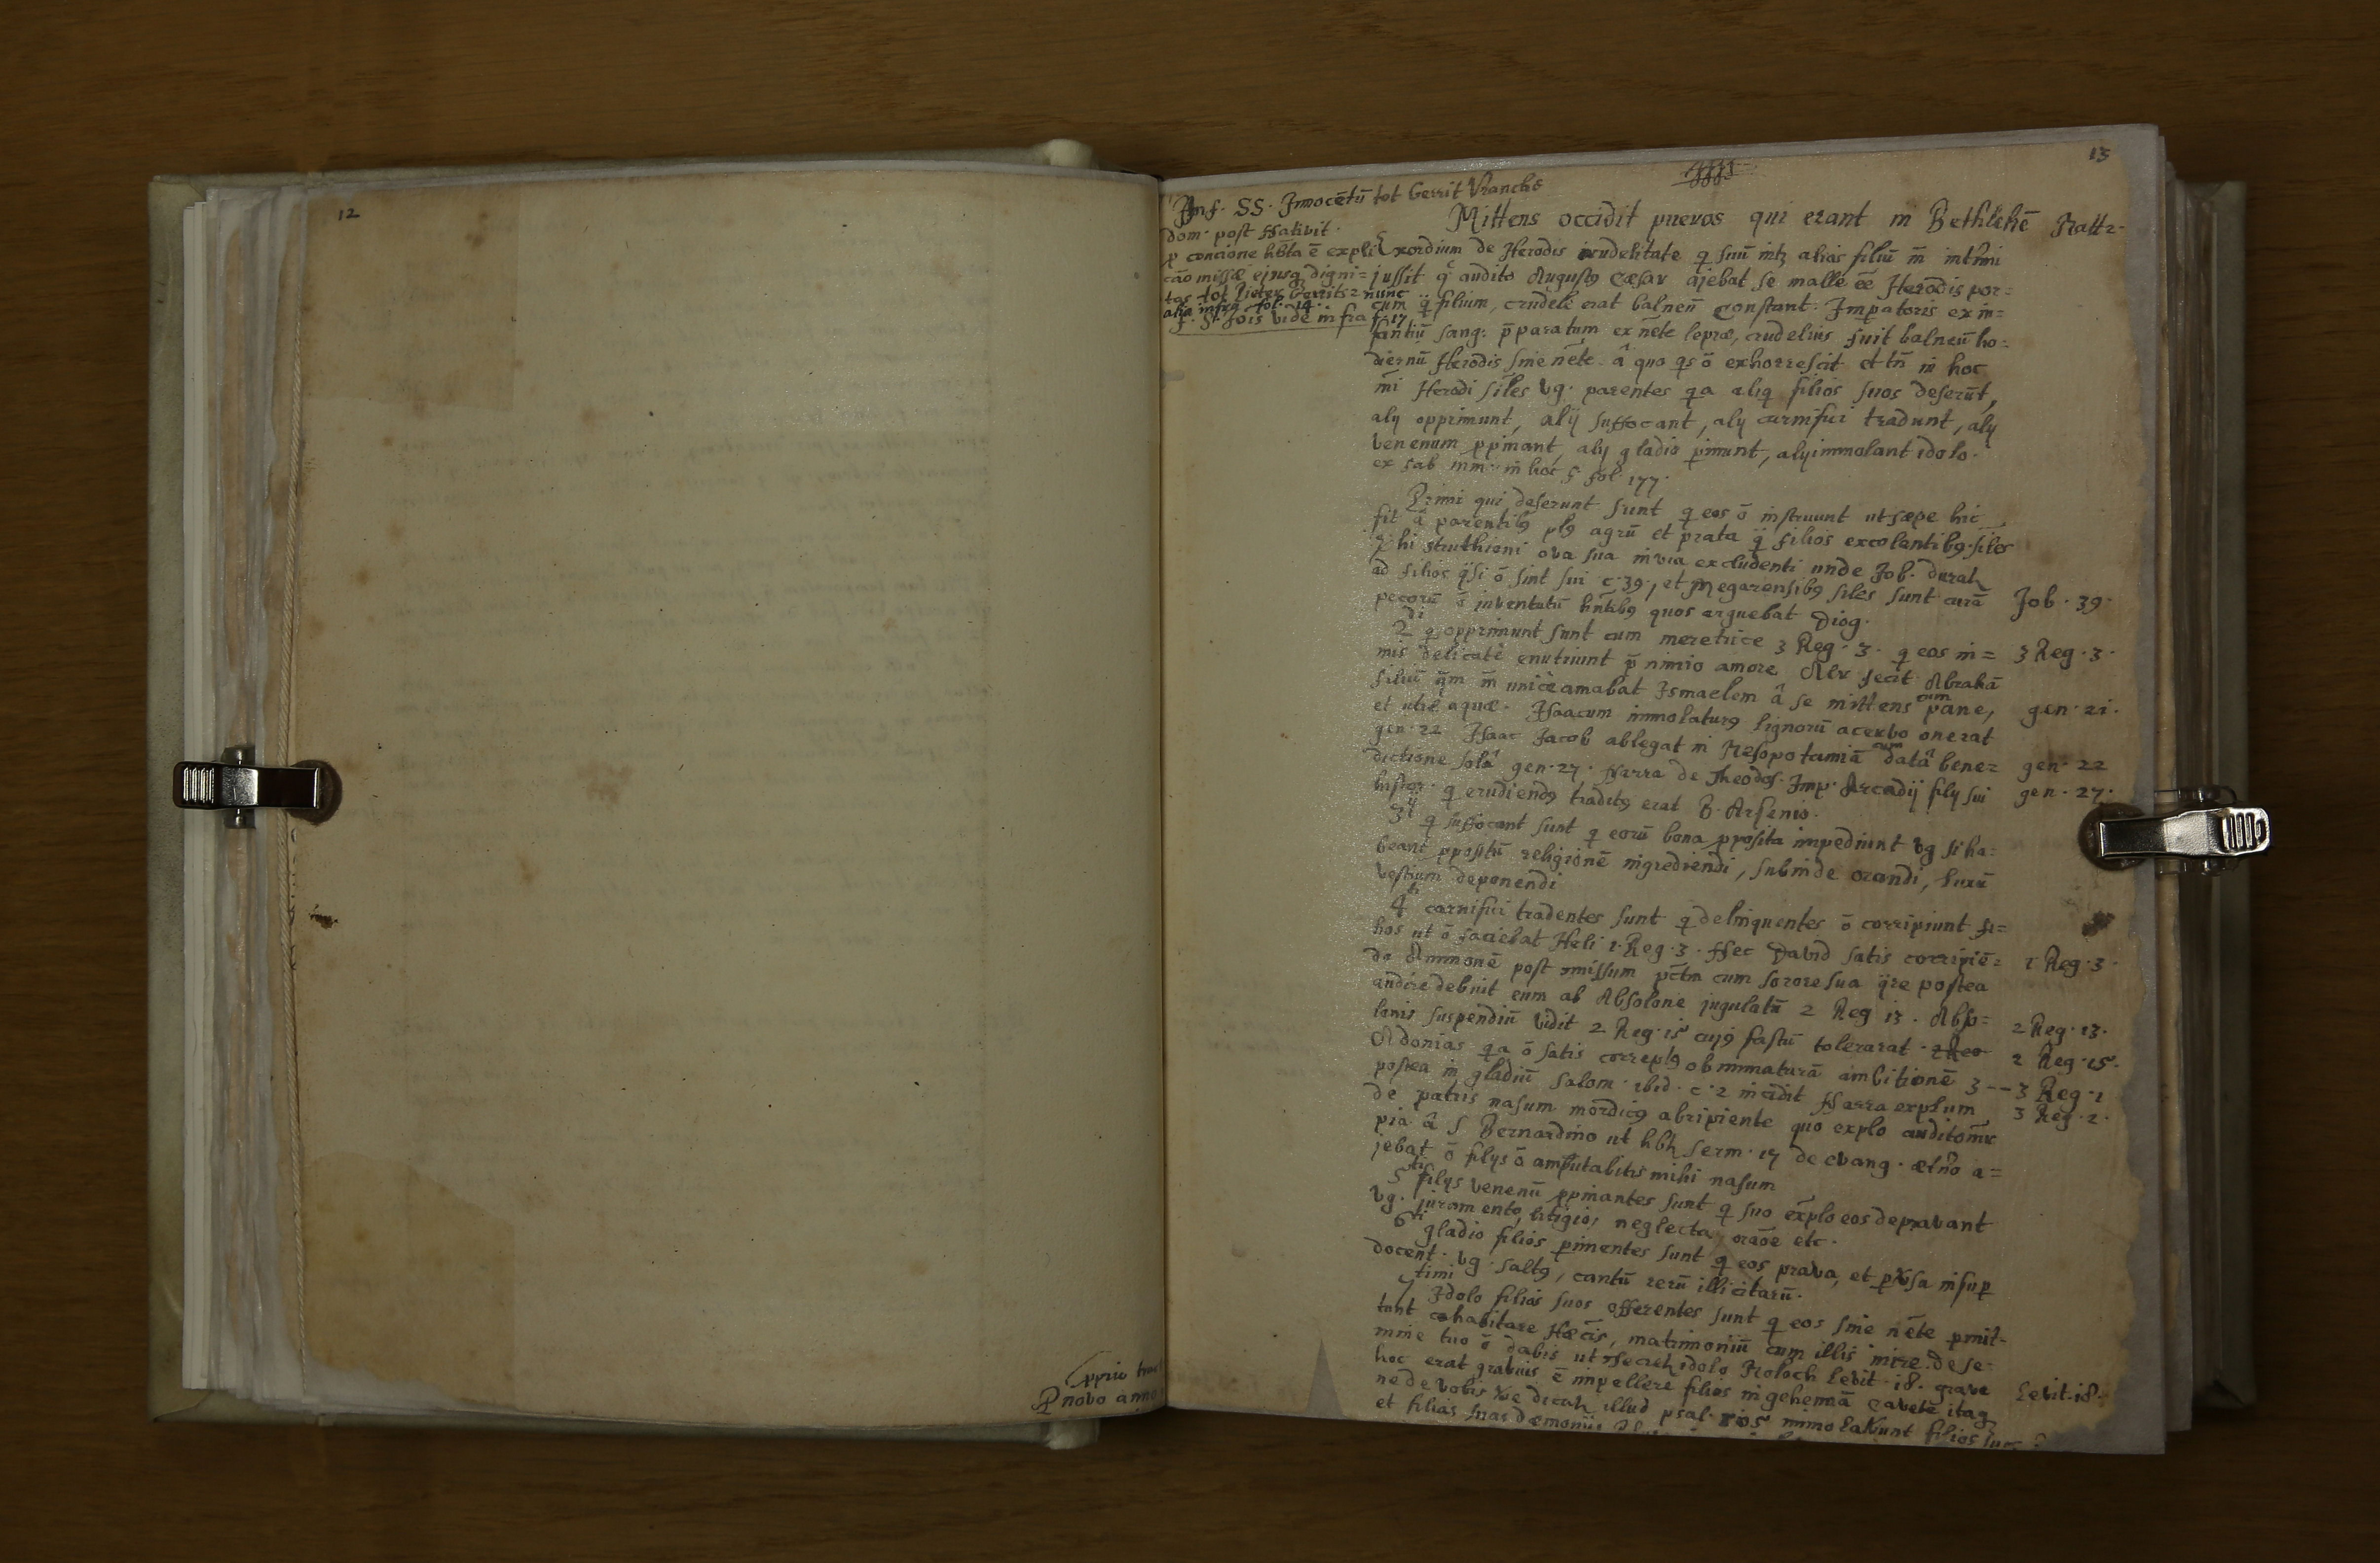 12
pprio
P novo anno
13
Inf. SS. Innocētū tot Gerrit Vrancks
dom. post Nativit.
p concione hbta ē expli
cāo missæ ejusq digni=
tas tot Pieter Gerrits 2 nunc
alia infra fol. 14.
F. S. Jois vide infra f. 17
Mittens occidit pueros qui erant in Bethlehē Matt 2.
Exordium de Herodis crudelitate q suū intz alias filiū m̄ intimi
jussit qc audito Augustq Cæsar ajebat se malle ēē Herodis por=
cum q̄ filium, crudele erat balneū Constant. Imperatoris ex in=
fantiū sang. p̄paratum ex nēte lepræ, crudelius fuit balneū ho=
diernū Herodis sine nēte. â quo qs ō exhorrescit et tn̄ in hoc
m̄i Herodi siles vg. parentes qa aliq filios suos deserūt,
alij opprimunt, alij suffocant, alij carnifici tradunt, alij
venenum ppinant, alij gladio pimunt, alij immolant idolo.
ex fab in hoc f fol. 177.
Primi qui deserunt sunt q eos ō instruunt ut sæpe hic
fit â parentibq plq agrū et prata q̄ filios excolentibq. siles
hi struthioni ova sua in via excludenti unde Job. durat
ad filios q̄si ō sint sui c. 39., et Megarensibq siles sunt curā Job. 39.
pecorū ō inventutū hn̄tibq quos arguebat Diog.
2di q opprimunt sunt cum meretrice 3 Reg. 3. q eos ni= 3 Reg. 3.
mis delicatè enutriunt p̄ nimio amore Alr fecit Abrahā
filiū q̄m m̄ unicè amabat Ismaelem â se mittens cum pane, gen. 21.
et utre aquæ. Isaacum immolaturq lignorū acervo onerat
gen. 22 Isaac Jacob ablegat in Mesopotamiā cum datâ bene= gen. 22
dictione solâ gen. 27. Narra de Theodos. Imp. Arcadij filij sui gen. 27.
histor. q erudiendq traditq erat B. Arsenio.
3ij q suffocant sunt q eorū bona pposita impediunt vg si ha=
beant ppositū religionē ingrediendi, subinde orandi, luxū
vestium deponendi
4ti carnifici tradentes sunt q delinquentes ō corripiunt fi=
lios ut ō faciebat Heli 1. Reg. 3. Nec David satis corripiē= 1 Reg. 3.
do Amnonē post omissum pctm cum sorore sua q̄re postea
audire debuit eum ab Absolone jugulatū 2 Reg 13. Abso= 2 Reg. 13.
lonis suspendiū vidit 2 Reg. 15 cujq fastū tolerarat 2 Reg. 15.
Adonias qa ō satis correptq ob immaturā ambitionē 3 -- 3 Reg. 1
postea in gladiū Salom. ibid. c. 2 incidit Narra explum 3 Reg. 2.
de patris nasum mordicq abripiente quo explo
pia â S Bernardino ut hbt serm. 17 de evang. ætno a=
jebat ō filijs ō amputabitis mihi nasum
5ti filijs venenū ppinantes sunt q suo explo eos depravant
vg. juramento, litigio, neglecta orāōe etc.
6ti gladio filios pimentes sunt q eos prava, et pvsa insup
docent. vg. saltq, cantū rerū illicitarū.
7timi Idolo filios suos offerentes sunt q eos sine nēte pmit=
tunt cohabitare Hæcis, matrimoniū cum illis inire. de se=
mine tuo ō dabis ut idolo Moloch Levit. 18. grave Levit. 18.
hoc erat gravius ē impellere filios in gehennā cavete itaq
ne de vobis dicat illud psal. 105 immolavunt filios suos
et filias suas dæmonijs